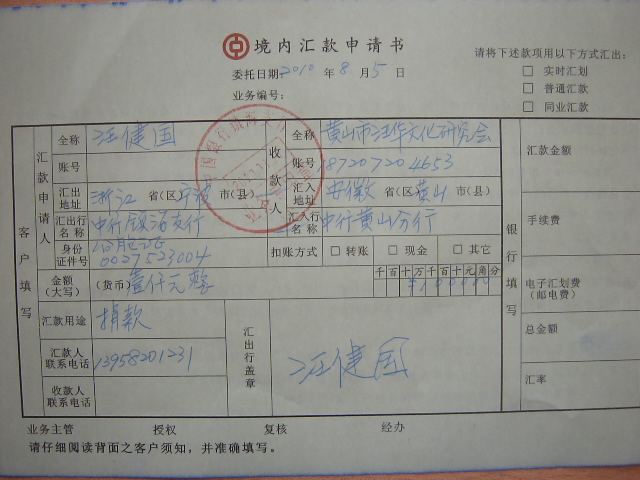 境内汇款申请书
请将下述款项用以下方式汇出:
委托日期: 2010 年 8 月 5 日
□ 实时汇划
□ 普通汇款
业务编号:
□ 同业汇款
客户填写
汇款申请人
全称 汪健国
账号
汇出地址 浙江 省(区) 宁波 市(县)
汇出行名称 中行镇海支行
身份证件号
0027523004
收款人
全称 黄山市汪华文化研究会
账号 187207204653
汇入地址 安徽 省(区) 黄山 市(县)
汇入行名称 中行黄山分行
扣账方式 □ 转账 □ 现金 □ 其它
金额(大写) (货币) 壹仟元整
千百十万千百十元角分
¥100000
汇款用途 捐款
汇款人联系电话 13958201231
收款人联系电话
汇出行盖章
汪健国
银行填写
汇款金额
手续费
电子汇划费(邮电费)
总金额
汇率
业务主管 授权 复核 经办
请仔细阅读背面之客户须知,并准确填写。